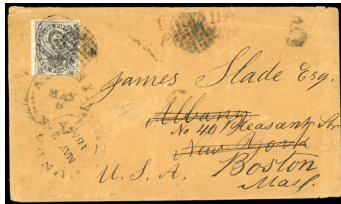 CANADA
James Slade Esq.
Albany
No 40 Pleasant St
New York
U. S. A. Boston
Mass.